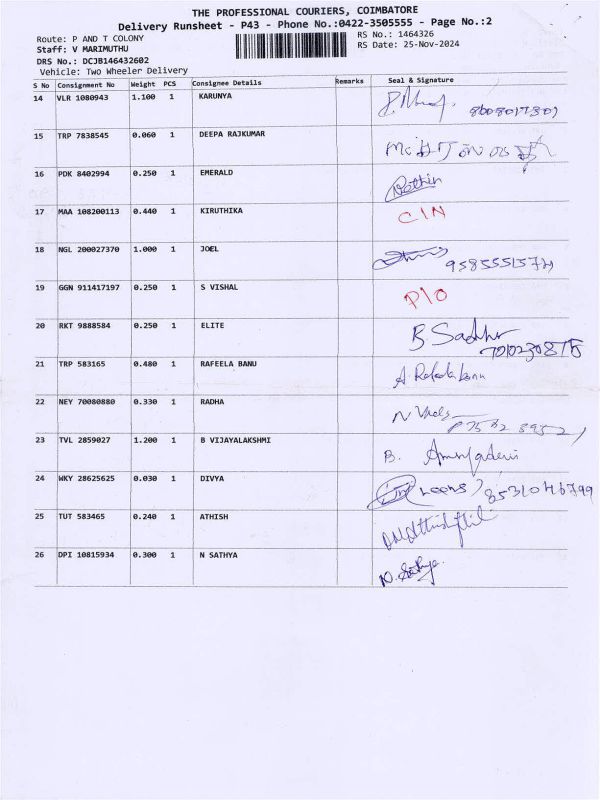 THE PROFESSIONAL COURIERS, COIMBATORE
Delivery Runsheet - P43 - Phone No.:0422-3505555 - Page No.:2
Route: P AND T COLONY
RS No.: 1464326
Staff: V MARIMUTHU
RS Date: 25-Nov-2024
DRS No.: DCJB146432602
Vehicle: Two Wheeler Delivery
S No Consignment No Weight PCS Consignee Details Remarks Seal & Signature
14 VLR 1080943 1.100 1 KARUNYA
15 TRP 7838545 0.060 1 DEEPA RAJKUMAR
16 PDK 8402994 0.250 1 EMERALD
17 MAA 108200113 0.440 1 KIRUTHIKA C/N
18 NGL 200027370 1.000 1 JOEL
19 GGN 911417197 0.250 1 S VISHAL P/O
20 RKT 9888584 0.250 1 ELITE B Sadhu
7010230875
21 TRP 583165 0.480 1 RAFEELA BANU
22 NEY 70080880 0.330 1 RADHA
23 TVL 2859027 1.200 1 B VIJAYALAKSHMI B.
24 WKY 28625625 0.030 1 DIVYA 8531046799
25 TUT 583465 0.240 1 ATHISH
26 DPI 10815934 0.300 1 N SATHYA N. Sathya